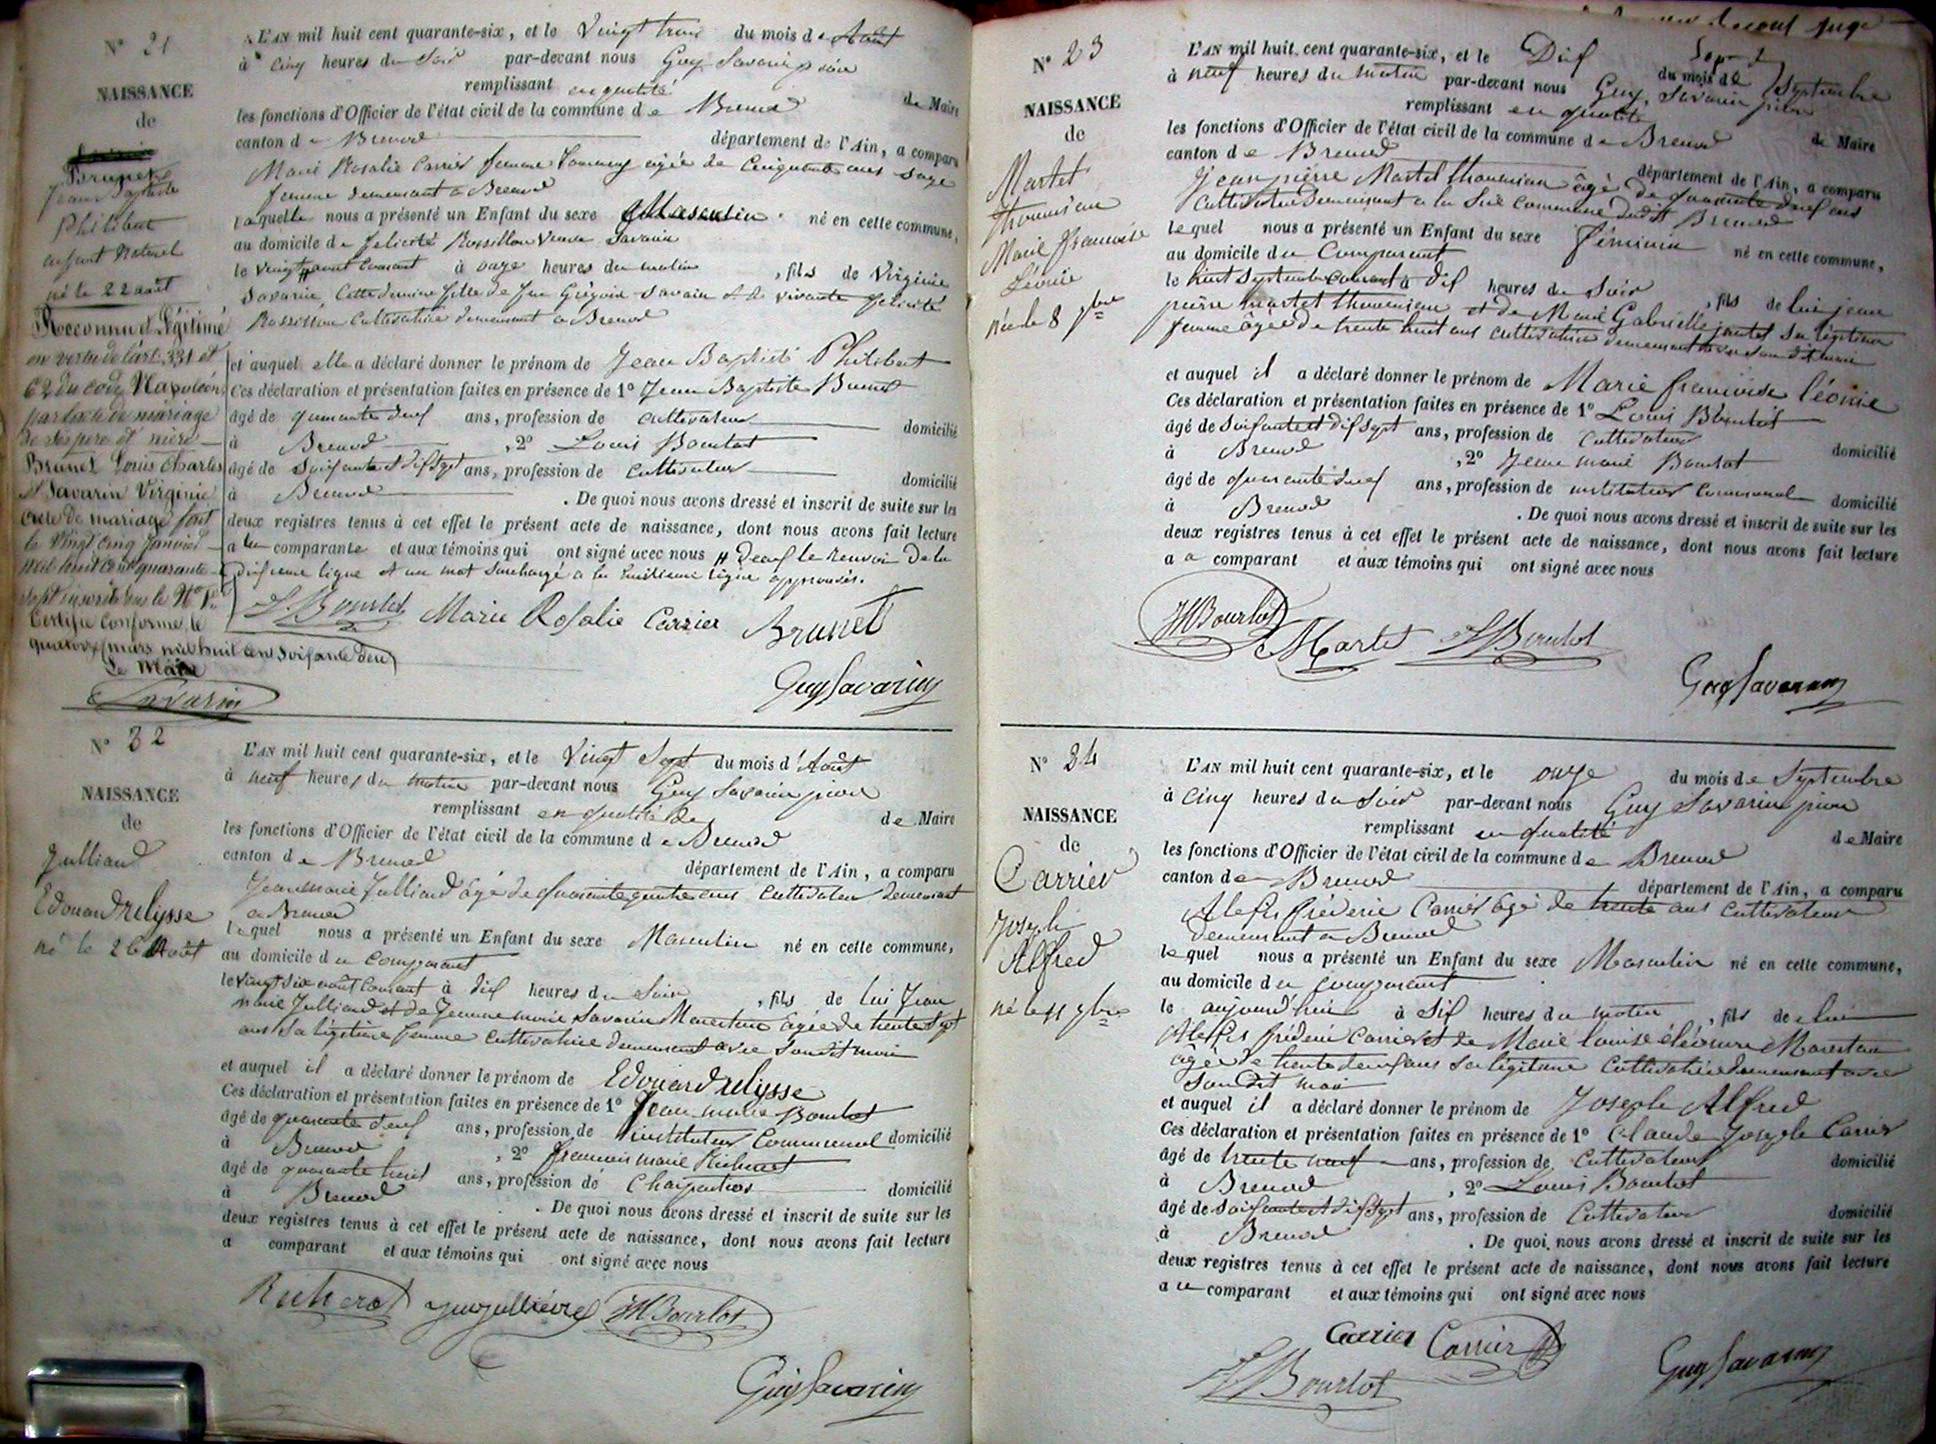 N° 21
NAISSANCE
de
Brunet
Jean Baptiste
Philibert
enfant Naturel
né le 22 août
Reconnu et Légitimé
en vertu de l'art. 331 et
62 du code Napoléon
par l'acte de mariage
de ses pere et mère
Brunet Louis Charles
et Savarin Virginie
acte de mariage fait
le vingt cinq janvier
mil huit cent quarante
sept inscrit sous le N°
Certifié conforme, le
quatorze mars mil huit cent soixante deux
Le Maire
Savarin
L'AN mil huit cent quarante-six, et le Vingt trois du mois d Août
à cinq heures du Soir par-devant nous Guy Savarin
remplissant en qualité de Maire
les fonctions d'Officier de l'état civil de la commune de Brenod
canton de Brenod département de l'Ain, a comparu
Marie Rosalie Carrier femme âgée de Cinquante ans Sage
femme demeurant a Brenod
laquelle nous a présenté un Enfant du sexe Masculin né en cette commune,
au domicile de Felicité Rossillon Veuve Savarin
le Vingt courant à onze heures du matin, fils de Virginie
Savarin, Cette dernière fille de Grégoire Savarin et de vivante félicité
Rossillon Cultivatrice demeurant a Brenod
et auquel elle a déclaré donner le prénom de Jean Baptiste Philibert
Ces déclaration et présentation faites en présence de 1° Jean Baptiste Brunet
âgé de quarante neuf ans, profession de cultivateur domicilié
à Brenod, 2° Louis Bourlot
âgé de Soixante et dix Sept ans, profession de cultivateur domicilié
à Brenod. De quoi nous avons dressé et inscrit de suite sur les
deux registres tenus à cet effet le présent acte de naissance, dont nous avons fait lecture
a la comparante et aux témoins qui ont signé avec nous le renvoi de la
ligne et un mot surchargé a la ligne approuvés.
L Bourlot Marie Rosalie Carrier Brunet
Guy Savarin
N° 22
NAISSANCE
de
Julliard
Edouard Ulysse
né le 26 Août
L'AN mil huit cent quarante-six, et le Vingt Sept du mois d'Août
à neuf heures du matin par-devant nous Guy Savarin
remplissant en qualité de de Maire
les fonctions d'Officier de l'état civil de la commune de Brenod
canton de Brenod département de l'Ain, a comparu
Jean marie Julliard âgé de Quarante quatre ans Cultivateur demeurant
a Brenod
lequel nous a présenté un Enfant du sexe Masculin né en cette commune,
au domicile du Comparant
le vingt six août Courant à dix heures du Soir, fils de lui Jean
marie Julliard et de Jeanne marie Savarin Marestan âgée de trente sept
ans Sa légitime femme cultivatrice demeurant avec Son dit mari
et auquel il a déclaré donner le prénom de Edouard Ulysse
Ces déclaration et présentation faites en présence de 1° Jean marie Bourlot
âgé de quarante neuf ans, profession de instituteur Communal domicilié
à Brenod, 2° francois marie Richerot
âgé de quarante huit ans, profession de Charpentier domicilié
à Brenod. De quoi nous avons dressé et inscrit de suite sur les
deux registres tenus à cet effet le présent acte de naissance, dont nous avons fait lecture
a comparant et aux témoins qui ont signé avec nous
Richerot JM Bourlot
Guy Savarin
N° 23
NAISSANCE
de
Martel
Thouminan
Marie francoise
Léonie
Née le 8 7bre
L'AN mil huit cent quarante-six, et le Dix du mois de Septembre
à neuf heures du matin par-devant nous Guy Savarin
remplissant en qualité de Maire
les fonctions d'Officier de l'état civil de la commune de Brenod
canton de Brenod département de l'Ain, a comparu
Jean pierre Martel Thouminan âgé de quarante neuf ans
Cultivateur Demeurant a la commune dudit Brenod
lequel nous a présenté un Enfant du sexe féminin né en cette commune,
au domicile du Comparant
le huit Septembre courant à dix heures du Soir, fils de lui jean
pierre Martel Thouminan et de Marie Gabrielle Sa légitime
femme âgée de trente huit ans cultivatrice demeurant avec Son dit mari
et auquel il a déclaré donner le prénom de Marie francoise léonie
Ces déclaration et présentation faites en présence de 1° Louis Bourlot
âgé de Soixante et dix Sept ans, profession de Cultivateur
à Brenod, 2° Jean marie Bourlot domicilié
âgé de quarante neuf ans, profession de instituteur Communal domicilié
à Brenod. De quoi nous avons dressé et inscrit de suite sur les
deux registres tenus à cet effet le présent acte de naissance, dont nous avons fait lecture
a u comparant et aux témoins qui ont signé avec nous
JM Bourlot Martel L Bourlot
Guy Savarin
N° 24
NAISSANCE
de
Carrier
Joseph
Alfred
né le 11 7bre
L'AN mil huit cent quarante-six, et le onze du mois de Septembre
à Cinq heures du Soir par-devant nous Guy Savarin
remplissant en qualité de Maire
les fonctions d'Officier de l'état civil de la commune de Brenod
canton de Brenod département de l'Ain, a comparu
Alexis fréderic Carrier âgé de trente ans Cultivateur
demeurant a Brenod
lequel nous a présenté un Enfant du sexe Masculin né en cette commune,
au domicile du comparant
le aujourd'hui à Six heures du matin, fils de lui
Alexis fréderic Carrier et de Marie louise éléonore Marestan
âgée de trente deux ans Sa légitime Cultivatrice demeurant avec
Son Dit mari
et auquel il a déclaré donner le prénom de Joseph Alfred
Ces déclaration et présentation faites en présence de 1° Claude Joseph Carrier
âgé de trente neuf ans, profession de Cultivateur domicilié
à Brenod, 2° Louis Bourlot
âgé de Soixante et dix Sept ans, profession de Cultivateur domicilié
à Brenod. De quoi nous avons dressé et inscrit de suite sur les
deux registres tenus à cet effet le présent acte de naissance, dont nous avons fait lecture
a u comparant et aux témoins qui ont signé avec nous
Carrier Carrier
L Bourlot Guy Savarin